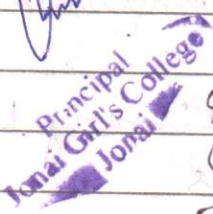 Principal
Jonai Girl's College
Jonai